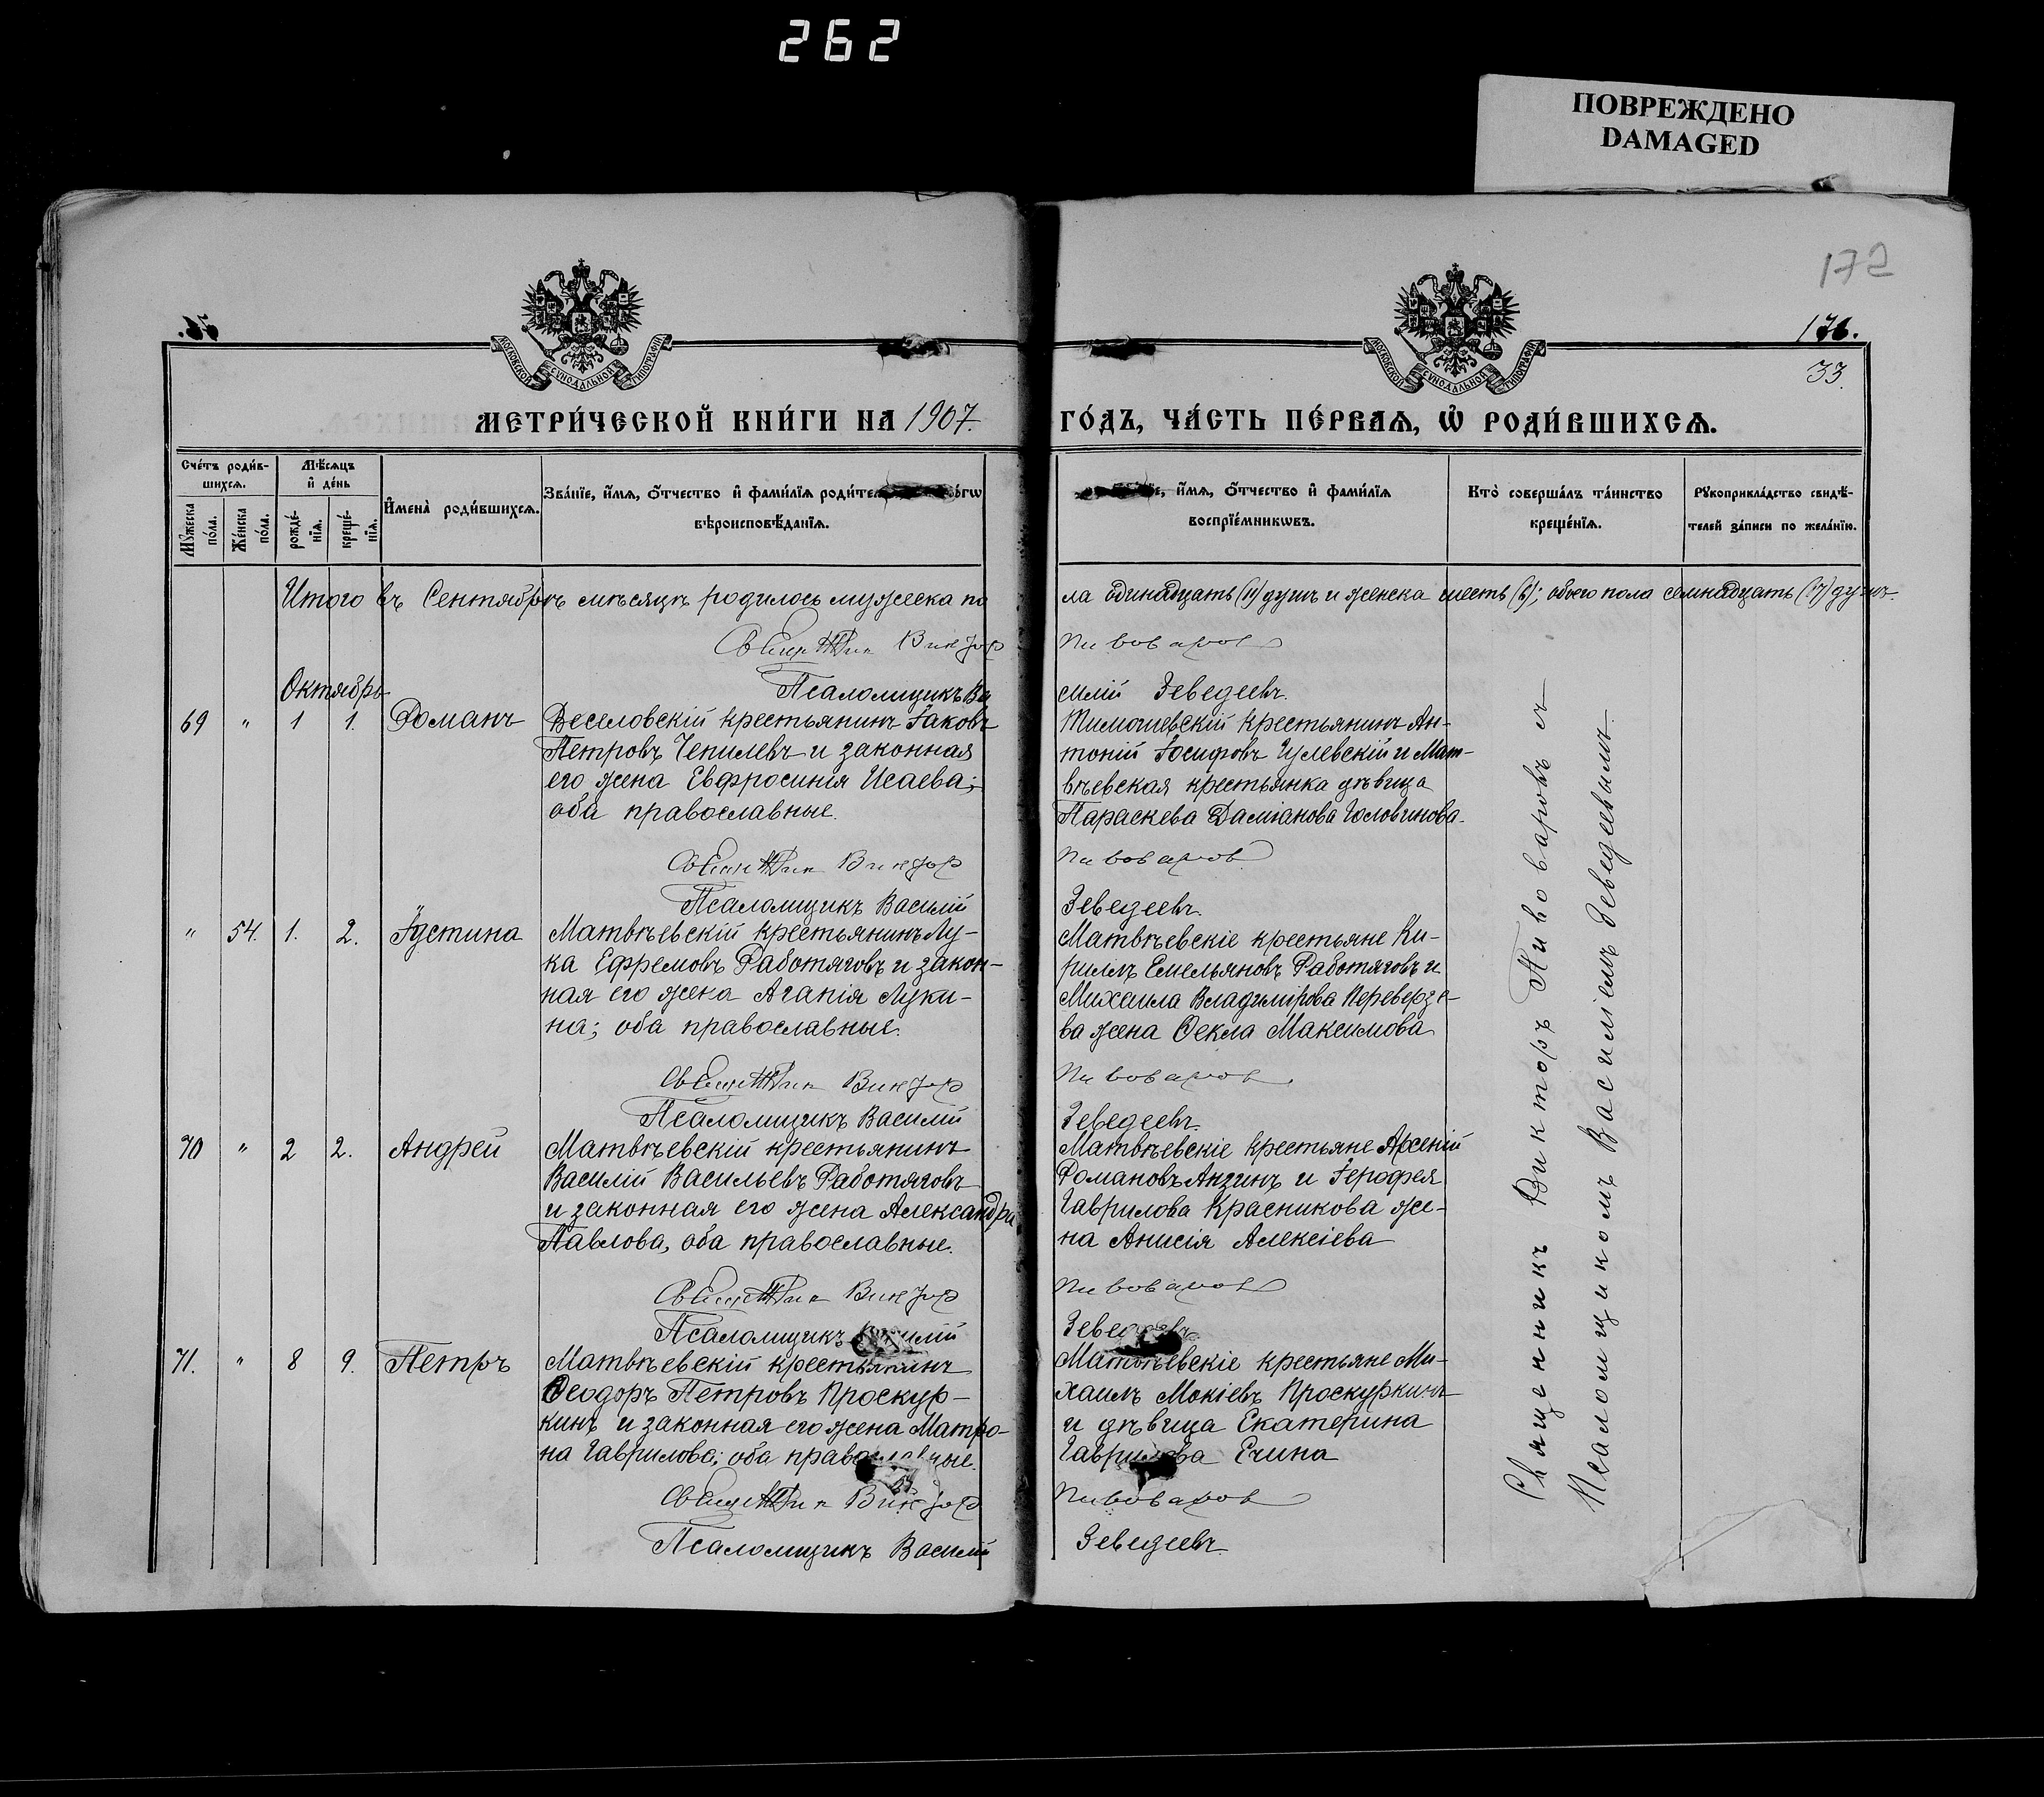 262
ПОВРЕЖДЕНО
DAMAGED
172
176.
33.
МОСКОВСКОЙ СѴНОДАЛЬНОЙ ТИПОГРАФІИ
МОСКОВСКОЙ СѴНОДАЛЬНОЙ ТИПОГРАФІИ
МЕТРИ́ЧЕСКОЙ КНИ́ГИ НА 1907. ГО́ДЪ, ЧА́СТЬ ПЕ́РВАѦ, Ѡ РОДИ́ВШИХСѦ.
Сче́тъ роди́в-
шихсѧ.
Мꙋ́жеска по́ла.
Же́нска по́ла.
Мѣ́сѧцъ
и де́нь
рожде́-
нїѧ.
креще́-
нїѧ.
Имена̀ роди́вшихсѧ.
Зва́нїе, и́мѧ, ѻ́тчество и фами́лїѧ
вѣроисповѣ́данїѧ.
и́мѧ, ѻ́тчество и фами́лїѧ
воспрїе́мникѡвъ.
Кто̀ соверша́лъ та́инство
креще́нїѧ.
Рꙋкоприкла́дство свидѣ́-
телей за́писи по жела́нїю.
Итого въ Сентябрѣ мѣсяцѣ родилось мужеска по
ла одинадцать (11) душъ и женска шесть (6); обоего пола семнадцать (17) душъ.
Священник Виктор Пивоваров
Псаломщикъ Ва
силій Зеведеевъ.
Октябрь
69 " 1 1. Романъ
Веселовскій крестьянинъ Іаковъ
Петровъ Чепилевъ и законная
его жена Евфросинія Исаева;
оба православные.
Тимошевскій крестьянинъ Ан-
тоній Іосифовъ и Мат-
вѣевская крестьянка дѣвица
Параскева Даміанова Головинова.
Священник Виктор Пивоваров
Псаломщикъ Василій Зеведеевъ.
" 54. 1. 2. Іустина
Матвѣевскій крестьянинъ Лу-
ка Ефремовъ Работяговъ и закон-
ная его жена Агапія Луки-
на; оба православные.
Матвѣевскіе крестьяне Ки-
риллъ Емельяновъ Работяговъ и
Михаила Владимірова Переверзе-
ва жена Ѳекла Максимова
Священник Виктор Пивоваров.
Псаломщикъ Василій Зеведеевъ.
70 " 2 2. Андрей
Матвѣевскій крестьянинъ
Василій Васильевъ Работяговъ
и законная его жена Александра
Павлова, оба православные.
Матвѣевскіе крестьяне Арсеній
Романовъ Анзинъ и Іерофея
Гаврилова Красникова же-
на Анисія Алексіева
Священник Виктор Пивоваров
Псаломщикъ Василій Зеведеевъ
71. " 8 9. Петръ
Матвѣевскій крестьянинъ
Ѳеодоръ Петровъ Проскур-
кинъ и законная его жена Матро-
на Гаврилова; оба православные.
Матвѣевскіе крестьяне Ми-
хаилъ Мокіевъ Проскуркинъ
и дѣвица Екатерина
Гаврилова Ечина
Священник Виктор Пивоваров
Псаломщикъ Василій Зеведеевъ
Священникъ Викторъ Пивоваровъ съ
Псаломщикомъ Василіемъ Зеведеевымъ.